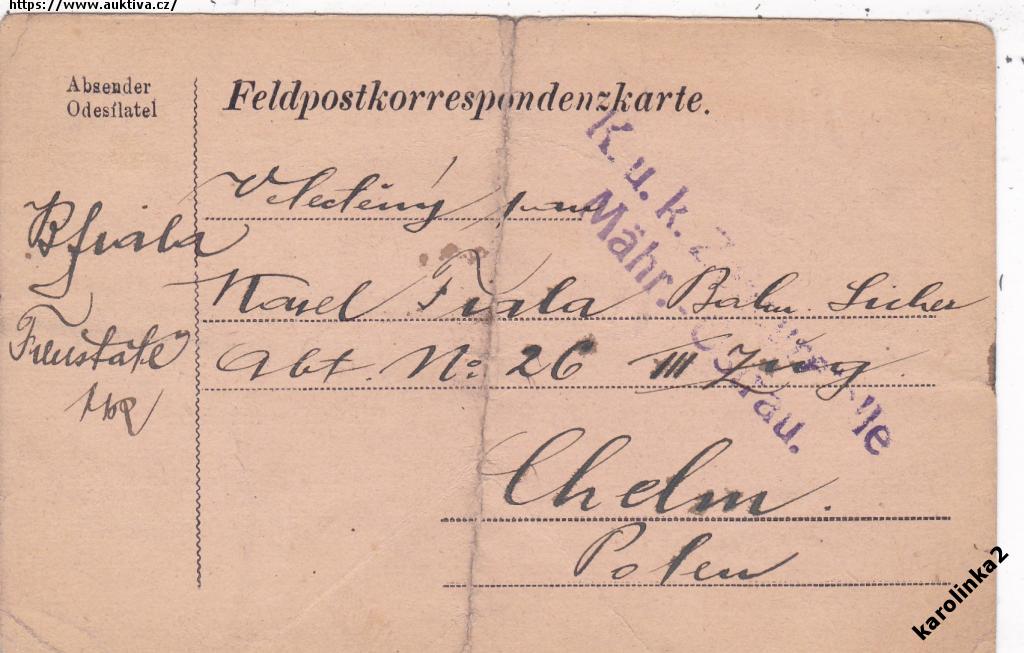 https://www.auktiva.cz/
Absender
Odesílatel
Feldpostkorrespondenzkarte.
K. u. k. Zensurstelle
Mähr.-Ostrau.
Velectěný pan
B Fiala
Karel Fiala Bahn. Sicher
Abt. No: 26 III Zug.
Chelm.
Polen
karolinka2